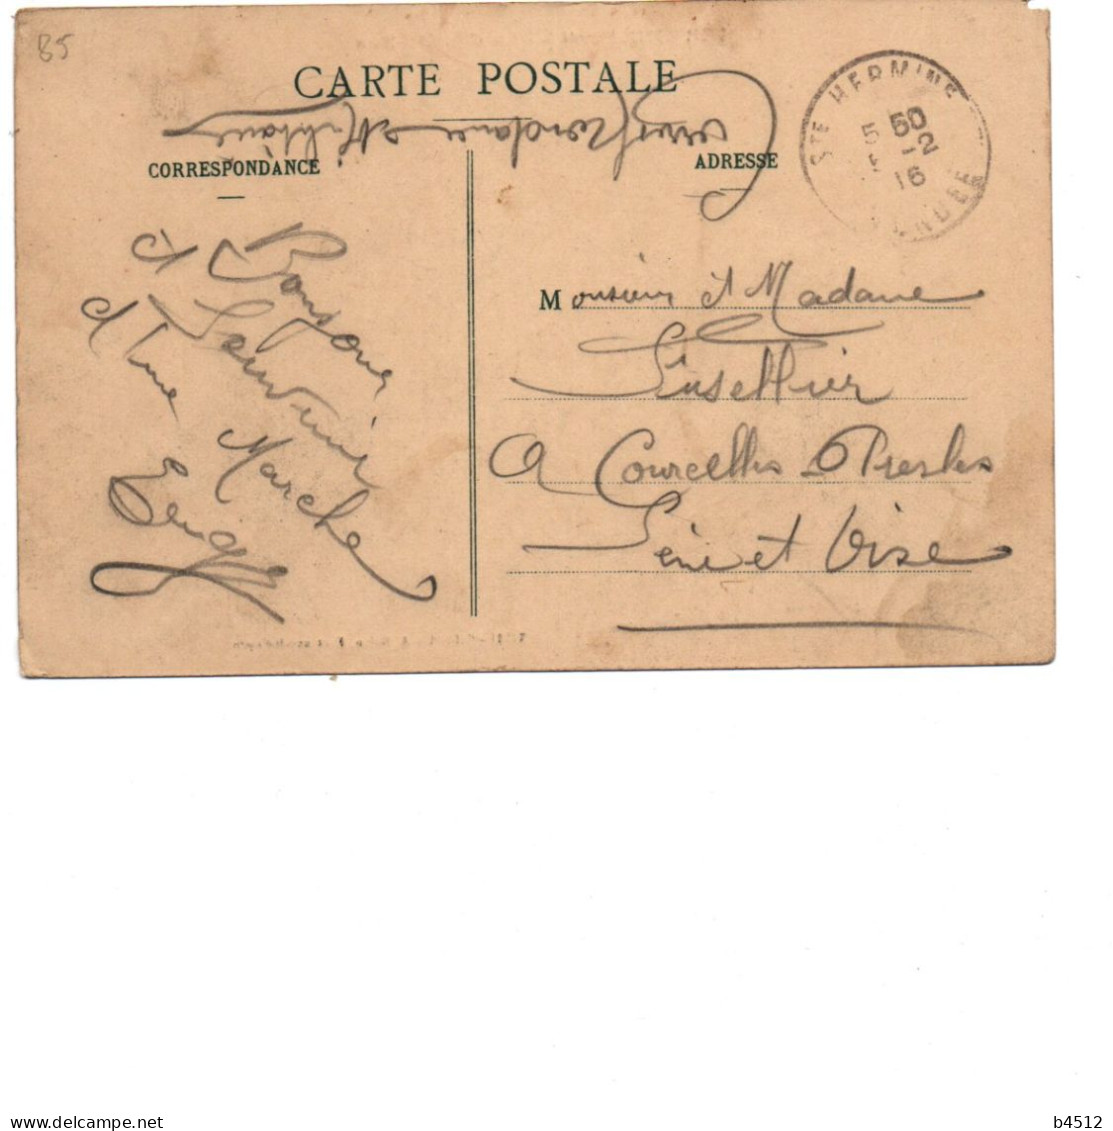 85
CARTE POSTALE
Correspondance Militaire
CORRESPONDANCE
ADRESSE
STE HERMINE
VENDEE
50
5 -2
16
Bonjour
et Souvenir
d'une Marche
Monsieur et Madame
Sinsellier
A Courcelles Presles
Seine et Oise
www.delcampe.net
b4512